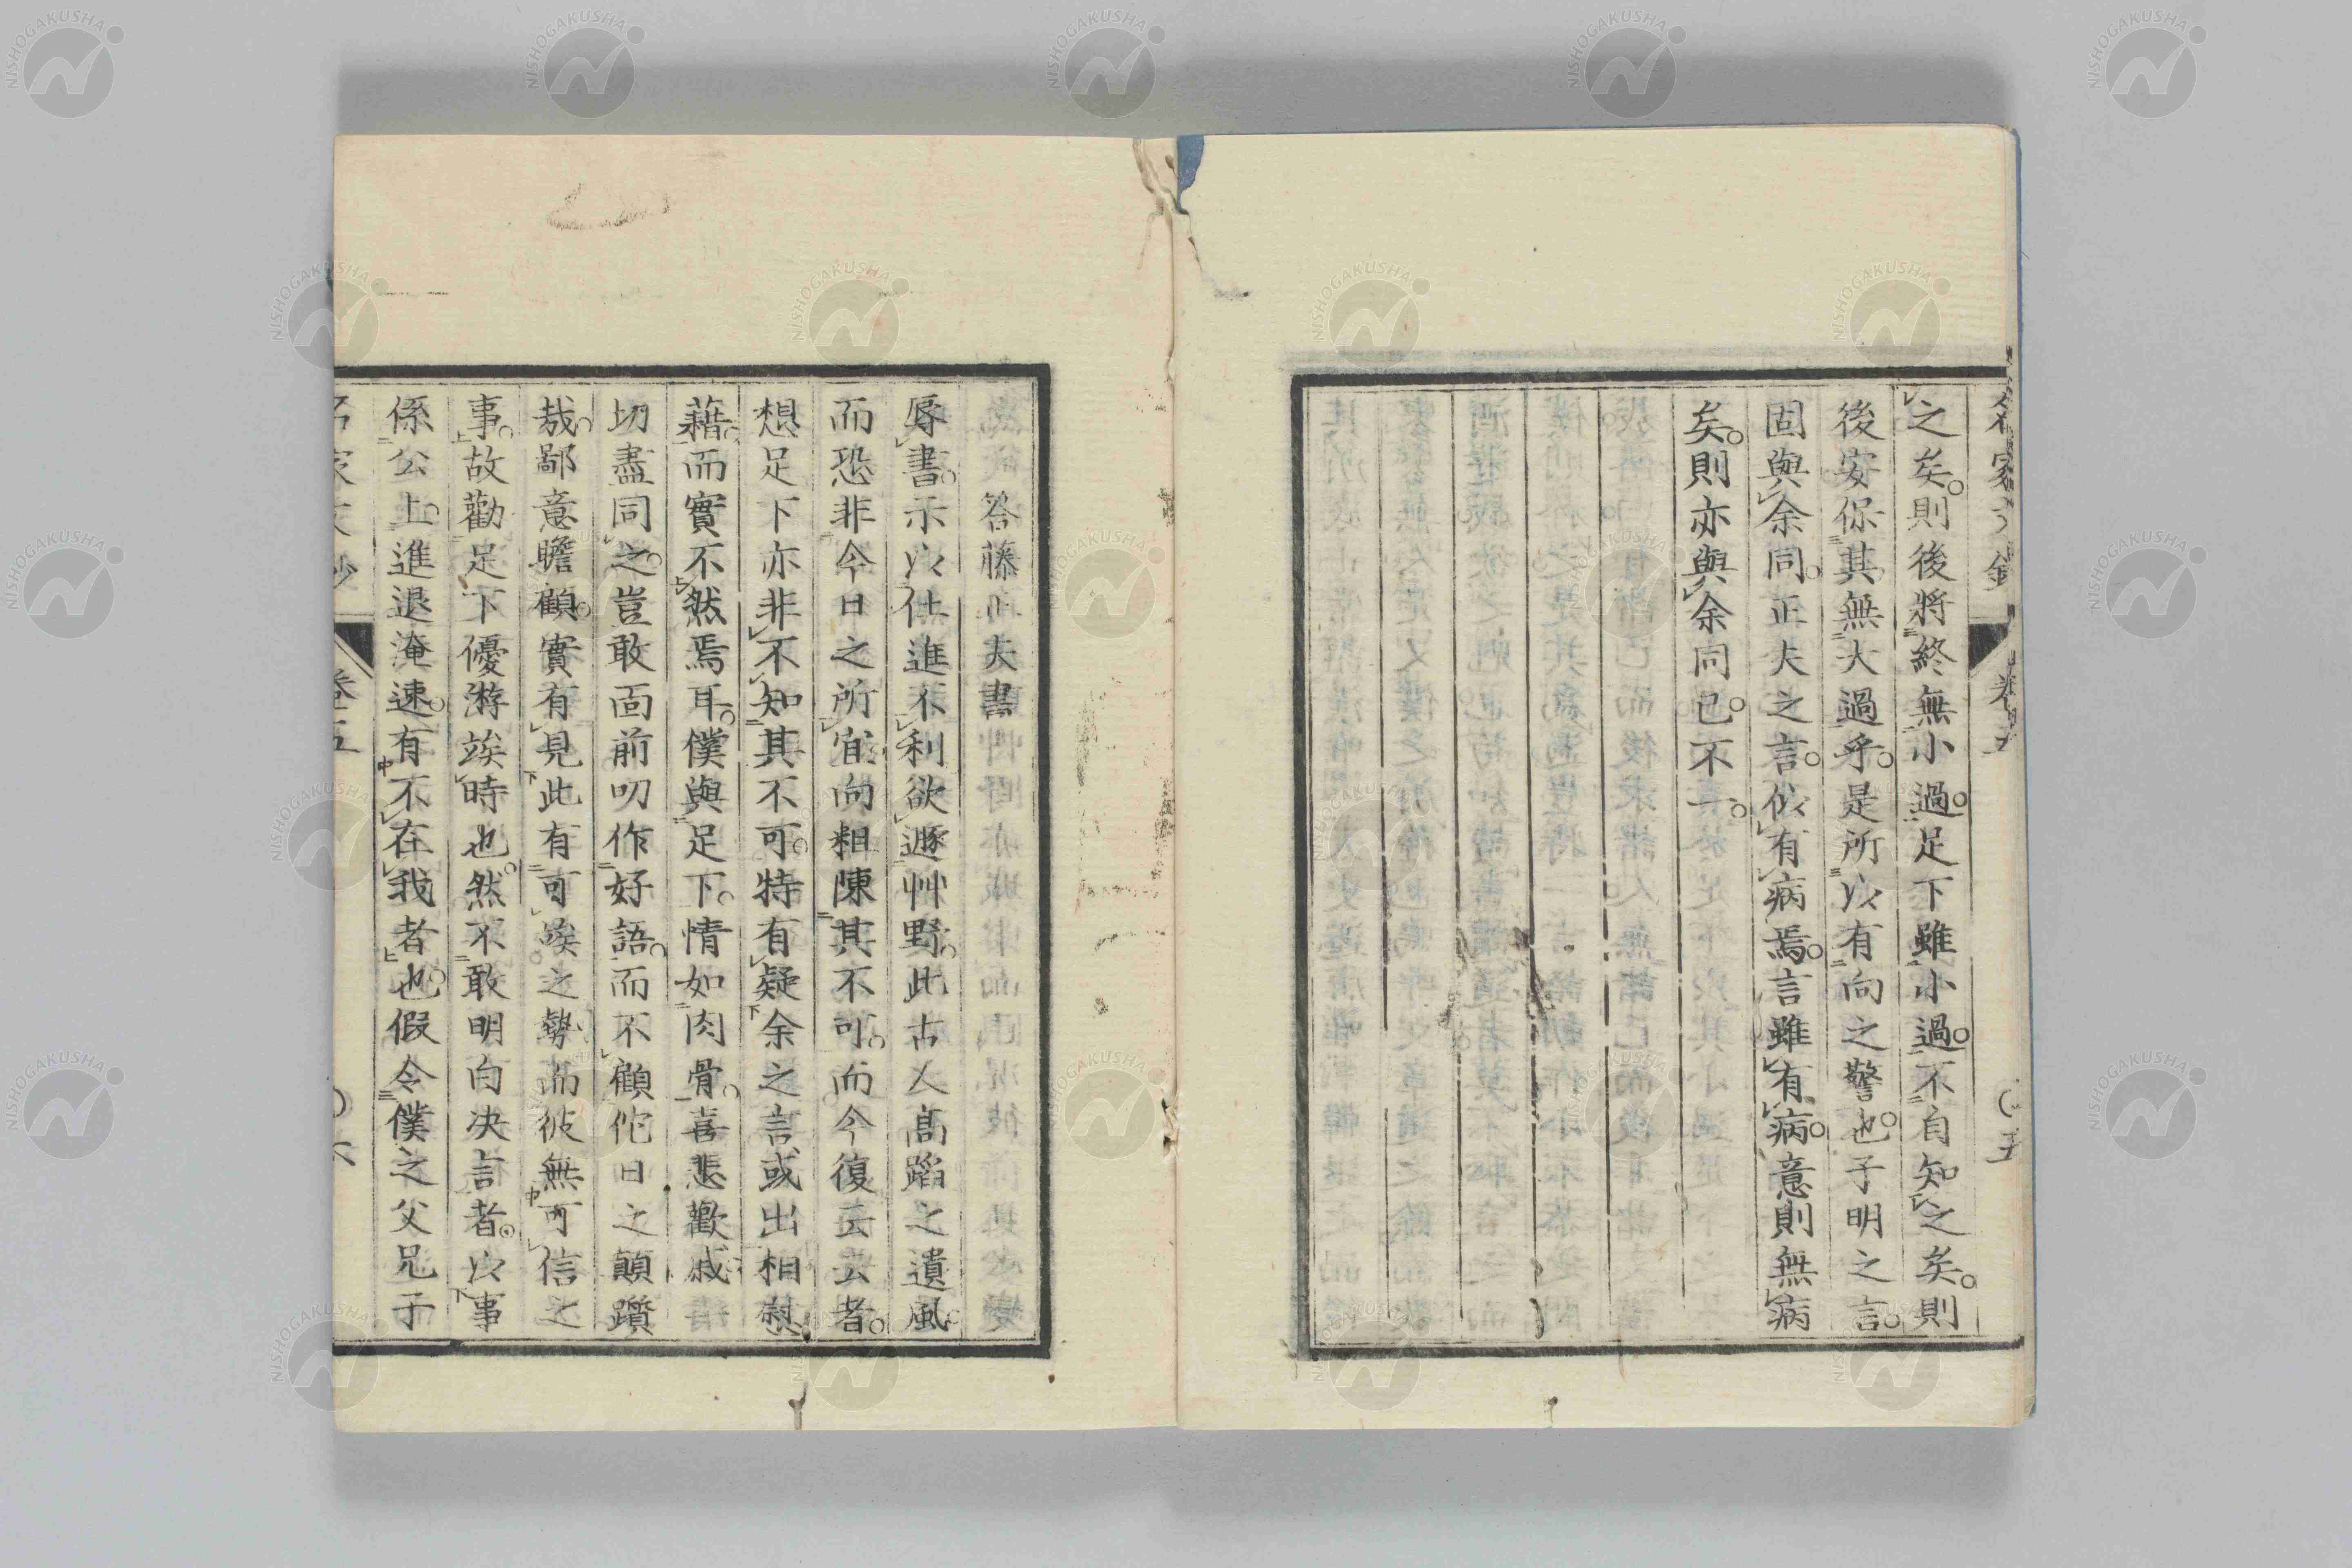 之矣則後將終無小過足下雖小過不自知之矣則
後安保其無大過乎是所以有向之警也子明之言
固與余同正夫之言似有病焉言雖有病意則無病
矣則亦與余同已不一
答藤正夫書
辱書示以仕進不利欲遯艸野此古人高蹈之遺風
而恐非今日之所宜向粗陳其不可而今復云云者
想足下亦非不知其不可特有疑余之言或出相慰
藉而實不然焉耳僕與足下情如肉骨喜悲歡戚
切盡同之豈敢面前叨作好語而不顧佗日之顛躓
哉鄙意瞻顧實有見此有可竢之勢而彼無可信之
事故勸足下優游竢時也然不敢明白决言者以事
係公上進退淹速有不在我者也假令僕之父兄子
名家文抄
卷五
NISHOGAKUSHA